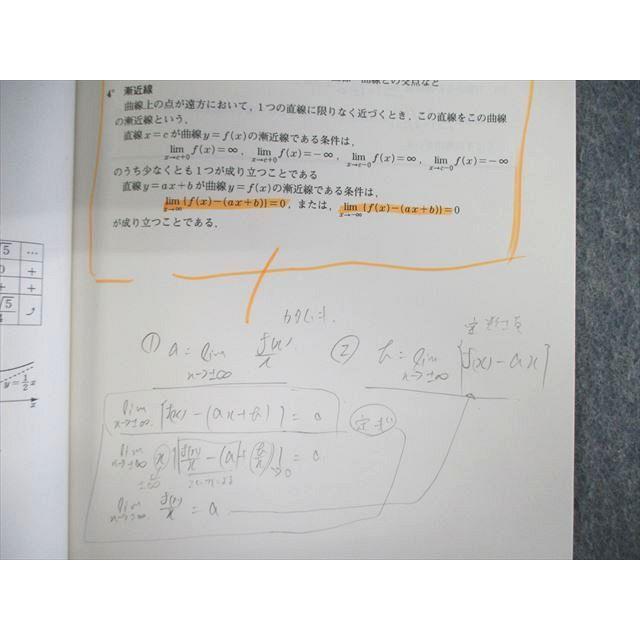 曲線との交点など
4° 漸近線
曲線上の点が遠方において，1つの直線に限りなく近づくとき，この直線をこの曲線
の漸近線という．
直線 x=c が曲線 y=f(x) の漸近線である条件は，
lim_{x→c+0} f(x)=∞，lim_{x→c+0} f(x)=−∞，lim_{x→c−0} f(x)=∞，lim_{x→c−0} f(x)=−∞
のうち少なくとも1つが成り立つことである
直線 y=ax+b が曲線 y=f(x) の漸近線である条件は，
lim_{x→∞} {f(x)−(ax+b)}=0，または，lim_{x→−∞} {f(x)−(ax+b)}=0
が成り立つことである．
√5 …
0 +
+ +
√5
y=1/2 x
x
① a = lim_{x→±∞} f(x)/x
② b = lim_{x→±∞} {f(x)−ax}
lim_{x→±∞} {f(x)−(ax+b)} = 0
lim_{x→±∞} x{f(x)/x −(a+b/x)} = 0
±∞
lim_{x→±∞} f(x)/x = a